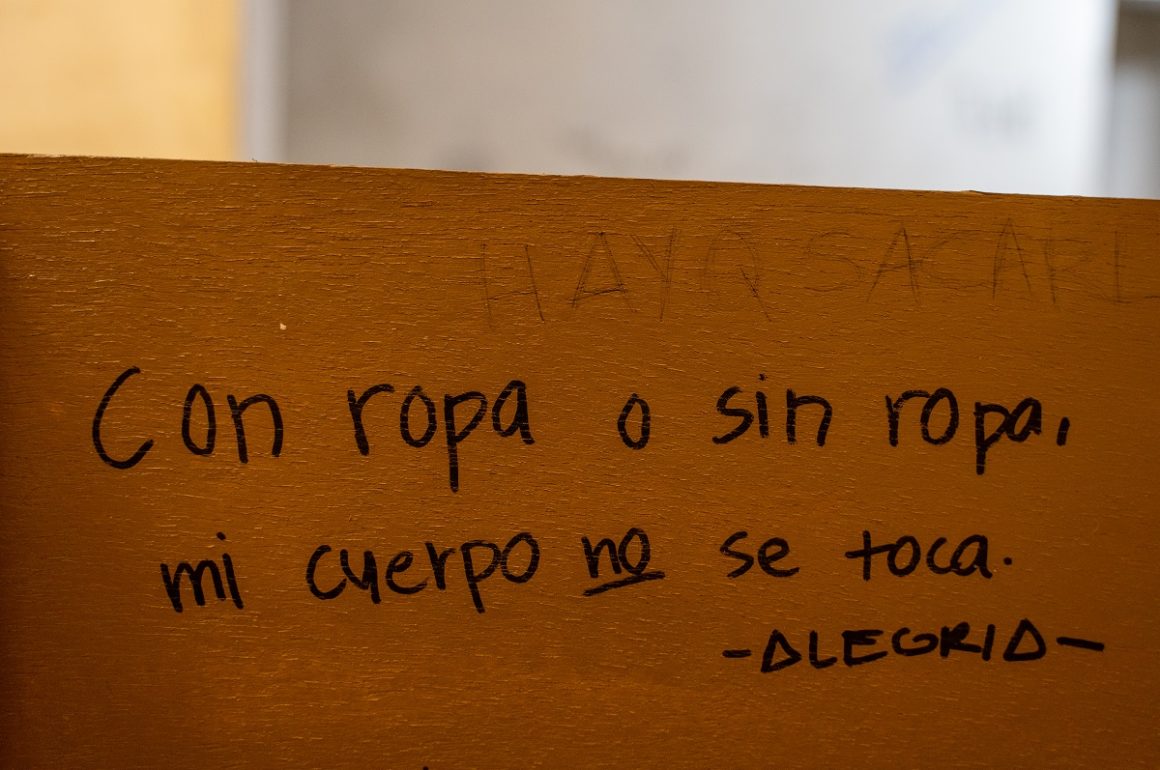 HAY Q SACARL
Con ropa o sin ropa,
mi cuerpo no se toca.
-ALEGRIA-